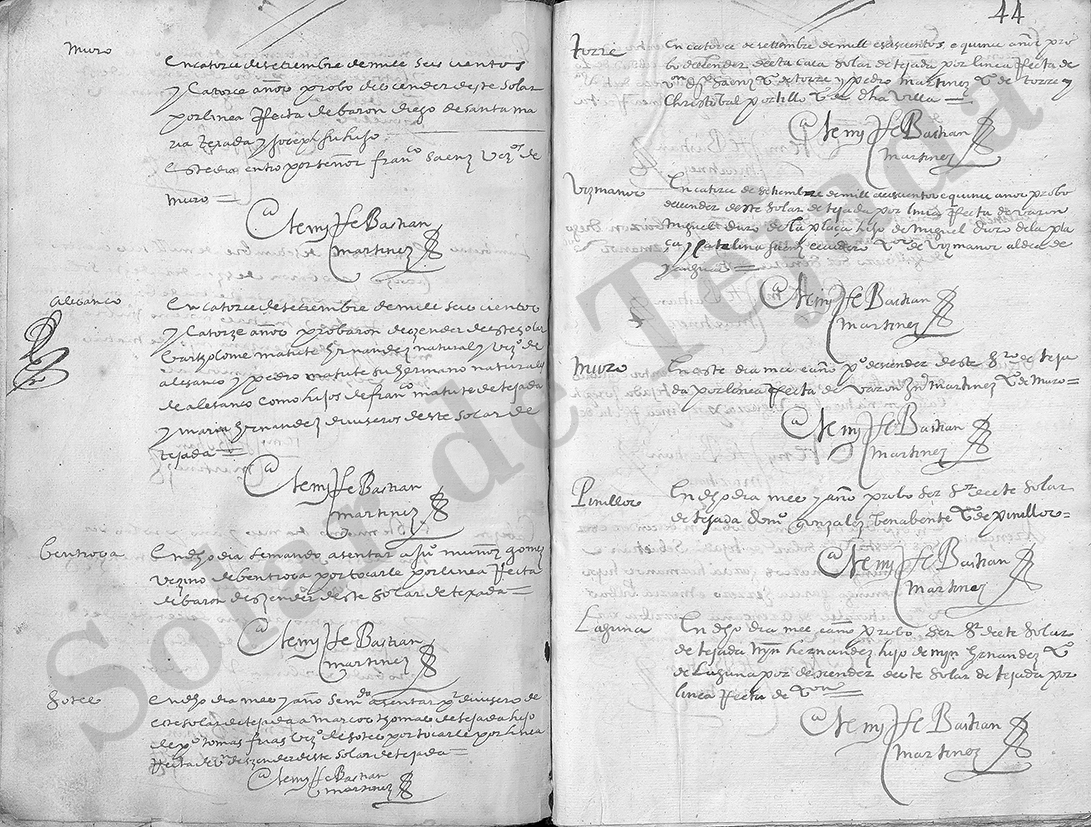 muro
En catorce de setiembre de mill seis cientos
y catorze años probo descender deste solar
por linea Recta de baron diego de santa ma
ria texada y josepe su hijo
este dia entro por señor franco saenz vezo de
muro =
Ante my Se Bastian
martinez
alesanco
En catorce de setiembre de mill seis cientos
y Catorze años probaron deszender deste solar
bartolome matute hernandez natural y vezo de
alesanco y pedro matute su hermano naturales
de alesanco como hijos de franco matute de tejada
y maria hernandez diviseros deste solar de
tejada =
Ante my Se Bastian
martinez
bentrosa
En dho dia se mando asentar a juo muñoz gomez
vezino de bentrosa por tocarle por linea Recta
de baron deszender deste solar de texada =
Ante my Se Bastian
martinez
Sotes
En dho dia mes y año se mdo asentar por divisero de
este solar de tejada a marcos tomas de tejada hijo
de po tomas frias vezo de sotes por tocarle por linea
Recta de Vn deszender deste solar de tejada =
Ante my Se Bastian
martinez
44
torre
En catorce de settiembre de mill e seiscientos e quince años pro
bo decender desta casa solar de tejada por linea Recta de
Vn Saenz Vo de torre y pedro martinez Vo de torre y
Christobal portillo Vo de dha villa =
Ante my Se Bastian
martinez
Vizmanos
En catorce de setiembre de mill e seiscientos e quince años probo
decender deste solar de tejada por linea Recta de varon
Miguel duro de la plaça hijo de Miguel duro de la pla
ça y Catalina saenz escudero Vo de vizmanos aldea de
yanguas =
Ante my Se Bastian
martinez
Muro
En este dia mes e año po decender deste Sr de teja
da por linea Recta de varon martinez Vo de Muro =
Ante my Se Bastian
martinez
Pinillos
En dho dia mes y año probo ser Sr deste Solar
de tejada Domo gonzalez benabente Vo de pinillos =
Ante my Se Bastian
martinez
Laguna
En dho dia mes e año probo ser Sr deste Solar
de tejada myn hernandez hijo de myn hernandez Vo
de Laguna por decender deste Solar de tejada por
linea Recta de Von =
Ante my Se Bastian
martinez
Solar de Tejada